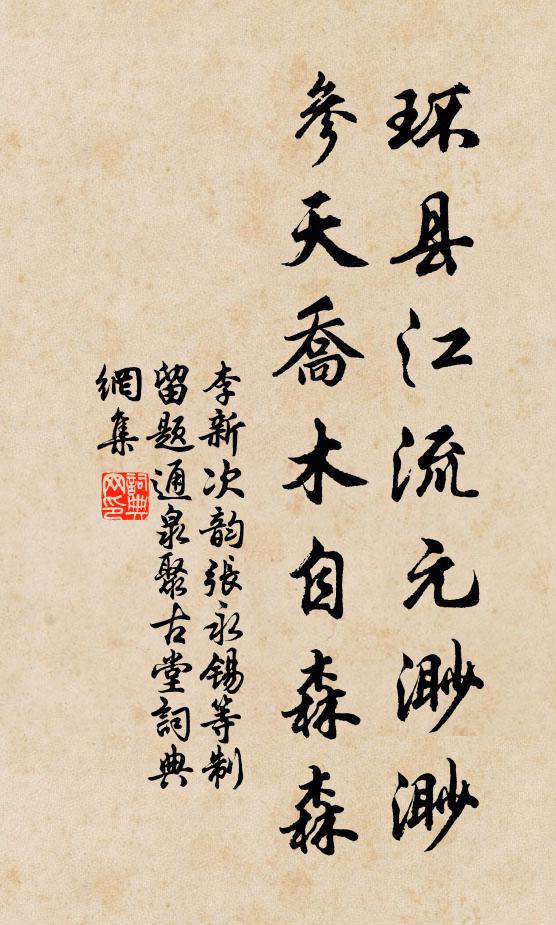 环县江流元渺渺
參天喬木自森森
李新次韵張永锡等制
留题通泉聚古堂詞典
網集
詞典網印